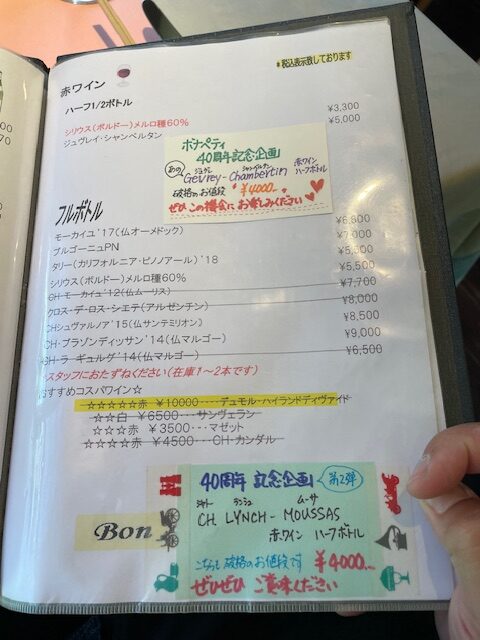 赤ワイン
*税込表示致しております
ハーフ1/2ボトル
シリウス(ボルドー)メルロ種60% ¥3,300
ジュヴレイ・シャンベルタン ¥5,000
ボナペティ
40周年記念企画
あの ジュヴレ シャンベルタン 赤ワイン
Gevrey-Chambertin ハーフボトル
破格のお値段 ¥4000
ぜひこの機会にお楽しみください
フルボトル
モーカイユ'17(仏オーメドック) ¥6,600
ブルゴーニュPN ¥7,000
タリー(カリフォルニア・ピノノアール)'18
シリウス(ボルドー)メルロ種60% ¥5,500
CH・モーカイユ'12(仏ムーリス) ¥7,700
クロス・デ・ロス・シエテ(アルゼンチン) ¥8,000
CHシュヴァルノア'15(仏サンテミリオン) ¥8,500
CH・ブラゾンディッサン'14(仏マルゴー) ¥9,000
CH・ラ・ギュルグ'14(仏マルゴー) ¥6,500
スタッフにおたずねください(在庫1~2本です)
おすすめコスパワイン☆
☆☆☆☆☆赤 ¥10000‥‥デュモル・ハイランドディヴァイド
☆☆白 ¥6500‥・サンヴェラン
☆☆☆赤 ¥3500‥・マゼット
☆☆☆☆赤 ¥4500‥・CH・カンダル
40周年記念企画 第2弾
シャトー ランシュ ムーサ
CH LYNCH-MOUSSAS
赤ワイン ハーフボトル
Bon
こちらも破格のお値段です ¥4000
ぜひぜひご賞味ください